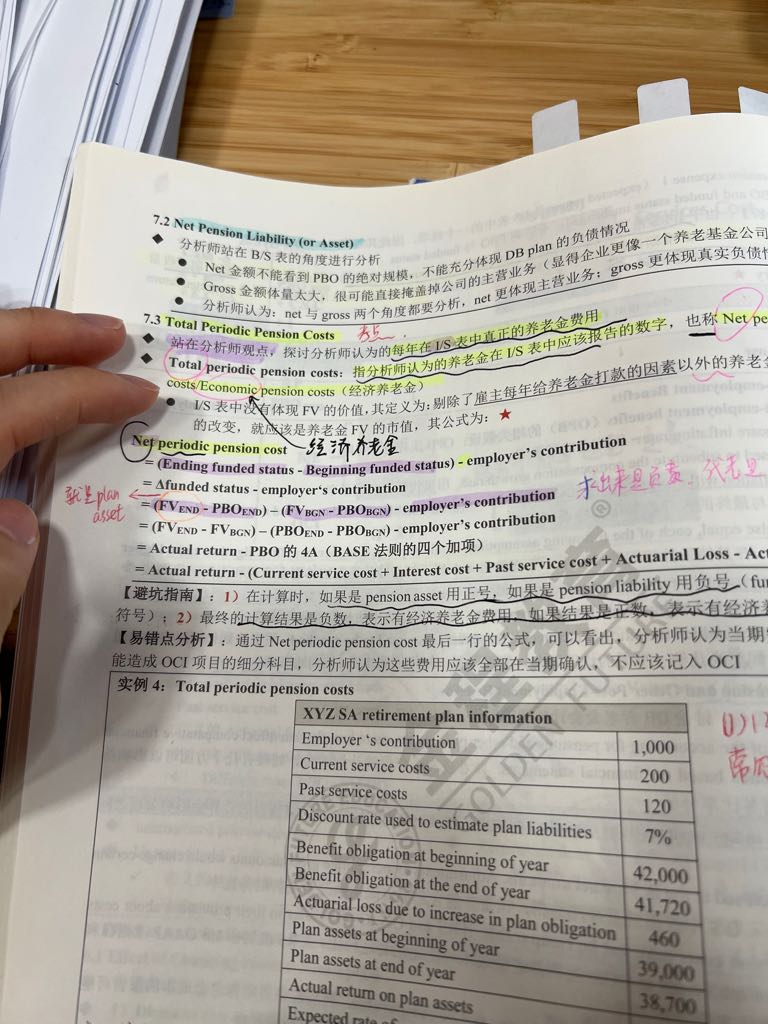 7.2 Net Pension Liability (or Asset)
◆ 分析师站在 B/S 表的角度进行分析
● Net 金额不能看到 PBO 的绝对规模，不能充分体现 DB plan 的负债情况
● Gross 金额体量太大，很可能直接掩盖掉公司的主营业务（显得企业更像一个养老基金公司
● 分析师认为：net 与 gross 两个角度都要分析，net 更体现主营业务；gross 更体现真实负债情
7.3 Total Periodic Pension Costs 考点.
◆ 站在分析师观点，探讨分析师认为的每年在 I/S 表中真正的养老金费用
◆ Total periodic pension costs：指分析师认为的养老金在 I/S 表中应该报告的数字，也称 Net pe
costs/Economic pension costs（经济养老金）
● I/S 表中没有体现 FV 的价值，其定义为：剔除了雇主每年给养老金打款的因素以外的养老金
的改变，就应该是养老金 FV 的市值，其公式为：★
Net periodic pension cost 经济养老金
= (Ending funded status - Beginning funded status) - employer's contribution
= Δfunded status - employer's contribution
就是plan asset
= (FVEND - PBOEND) – (FVBGN - PBOBGN) - employer's contribution
= (FVEND - FVBGN) – (PBOEND - PBOBGN) - employer's contribution
= Actual return - PBO 的 4A（BASE 法则的四个加项）
= Actual return - (Current service cost + Interest cost + Past service cost + Actuarial Loss - Act
【避坑指南】：1）在计算时，如果是 pension asset 用正号，如果是 pension liability 用负号（fun
符号）；2）最终的计算结果是负数，表示有经济养老金费用，如果结果是正数，表示有经济养
【易错点分析】：通过 Net periodic pension cost 最后一行的公式，可以看出，分析师认为当期
能造成 OCI 项目的细分科目，分析师认为这些费用应该全部在当期确认，不应该记入 OCI
实例 4：Total periodic pension costs
XYZ SA retirement plan information
Employer 's contribution 1,000
Current service costs 200
Past service costs 120
Discount rate used to estimate plan liabilities 7%
Benefit obligation at beginning of year 42,000
Benefit obligation at the end of year 41,720
Actuarial loss due to increase in plan obligation 460
Plan assets at beginning of year 39,000
Plan assets at end of year 38,700
Actual return on plan assets
Expected rate of
金程教育
GOLDEN FUTURE
®